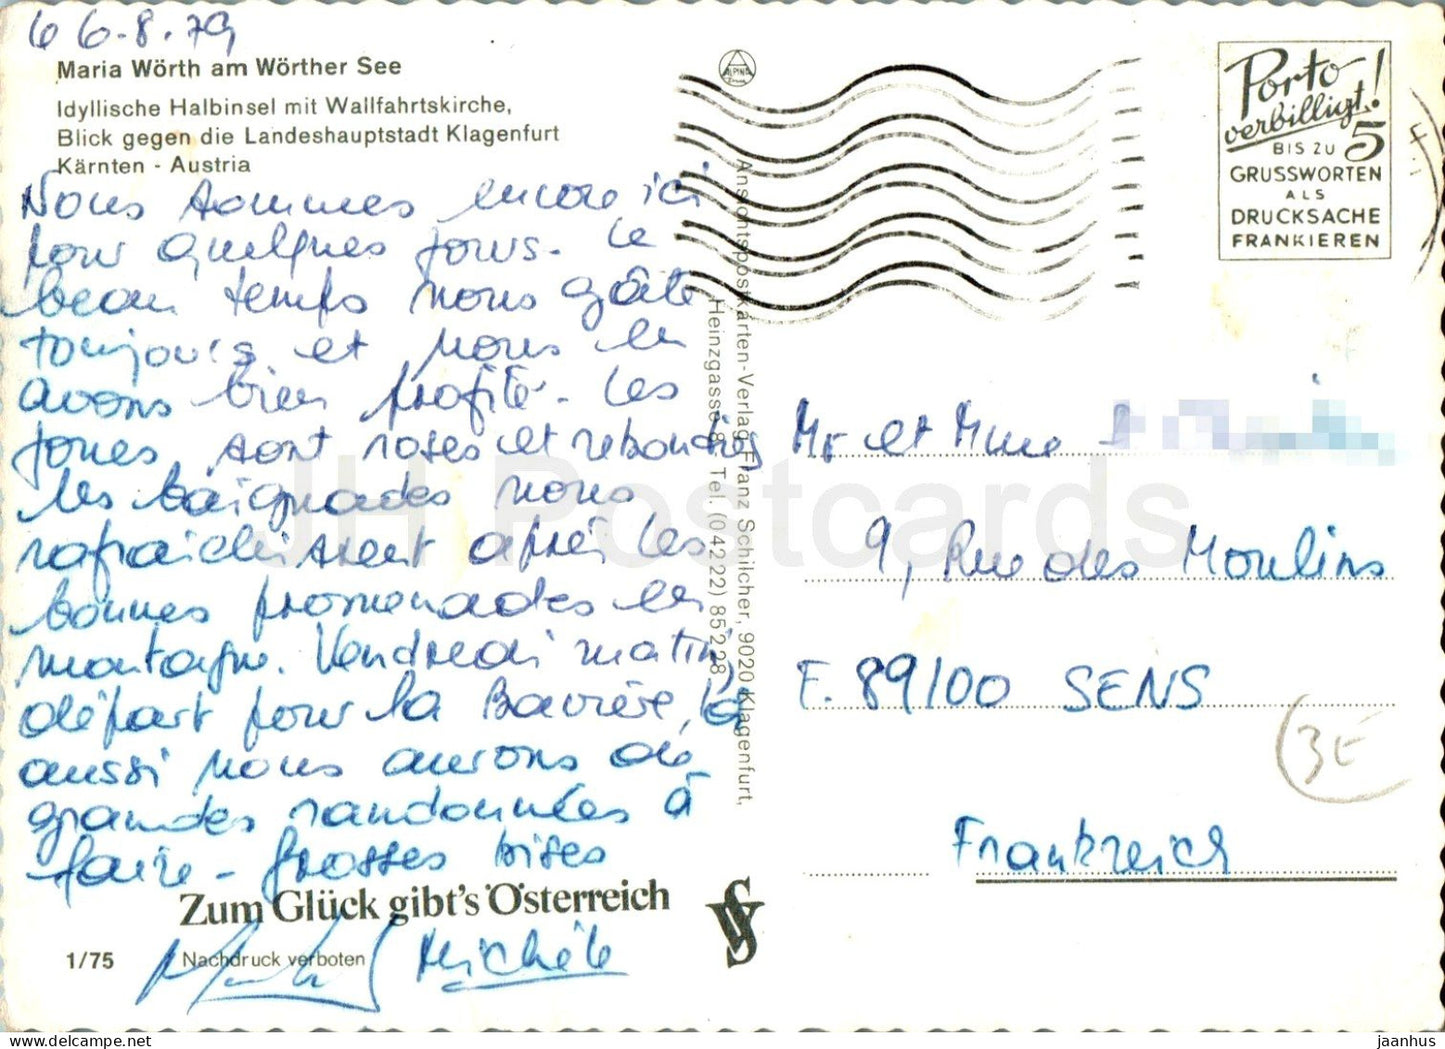 6-8-79
Maria Wörth am Wörther See
Idyllische Halbinsel mit Wallfahrtskirche,
Blick gegen die Landeshauptstadt Klagenfurt
Kärnten - Austria
Nous sommes encore ici
pour quelques jours. Le
beau temps nous gâte
toujours et nous en
avons bien profité. Les
joues sont roses et rebondies
les baignades nous
rafraichissent après les
bonnes promenades en
montagne. Vendredi matin,
départ pour la Bavière, là
aussi nous aurons de
grandes randonnées à
faire - Grosses bises
Zum Glück gibt's Österreich
1/75
Nachdruck verboten
Michèle
ALPINA
Ansichtspostkarten-Verlag Franz Schilcher, 9020 Klagenfurt,
Heinzgasse 8, Tel. (04222) 85228
Porto
verbilligt!
BIS ZU 5
GRUSSWORTEN
ALS
DRUCKSACHE
FRANKIEREN
Mr et Mme
9, Rue des Moulins
F. 89100 SENS
3E
Frankreich
JH Postcards
jaanhus - HipPostcard.com